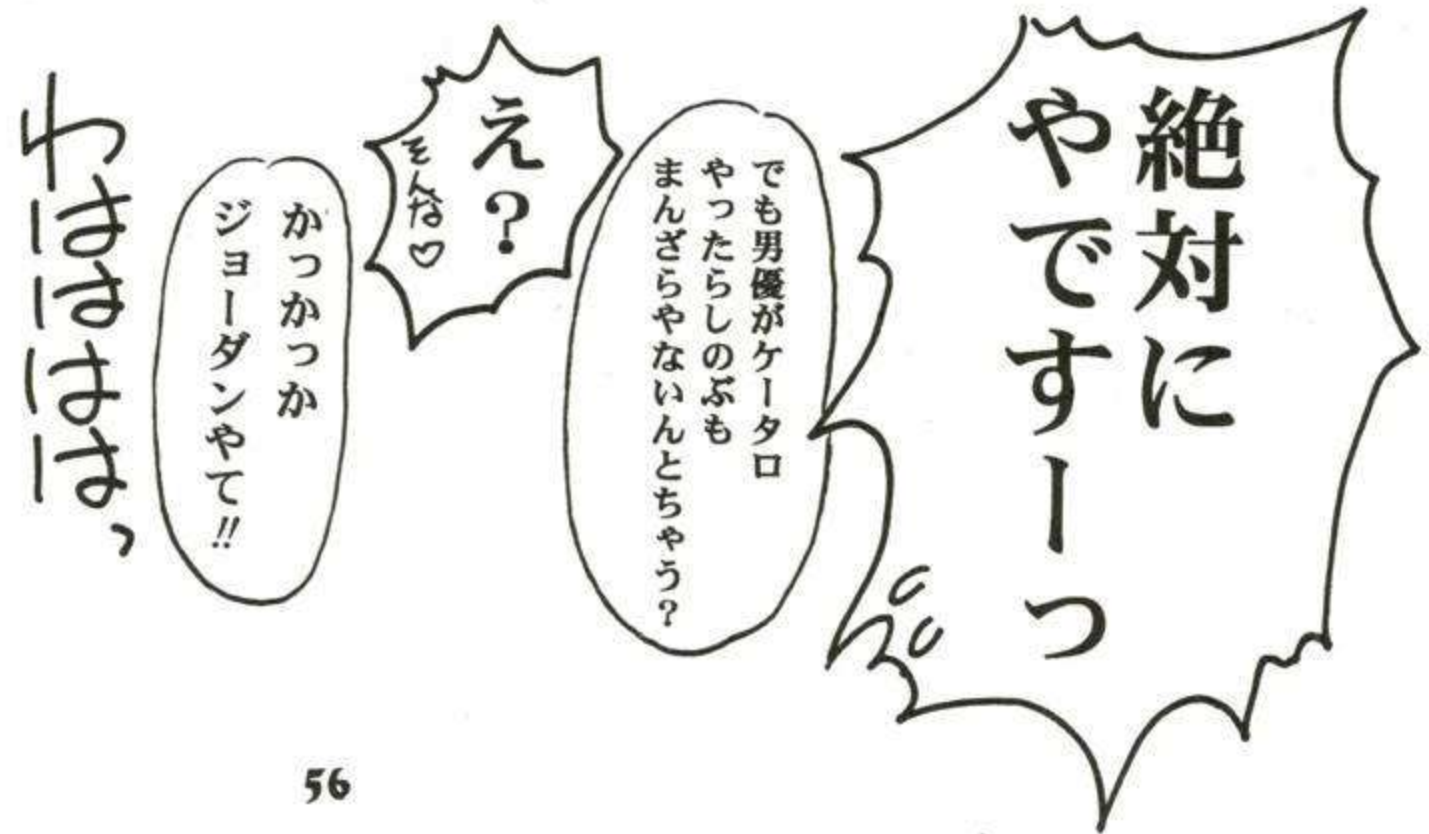 絶対に
やですーっ
でも男優がケータロ
やったらしのぶも
まんざらやないんとちゃう？
え？
そんな♡
かっかっか
ジョーダンやて!!
わはははは、
56